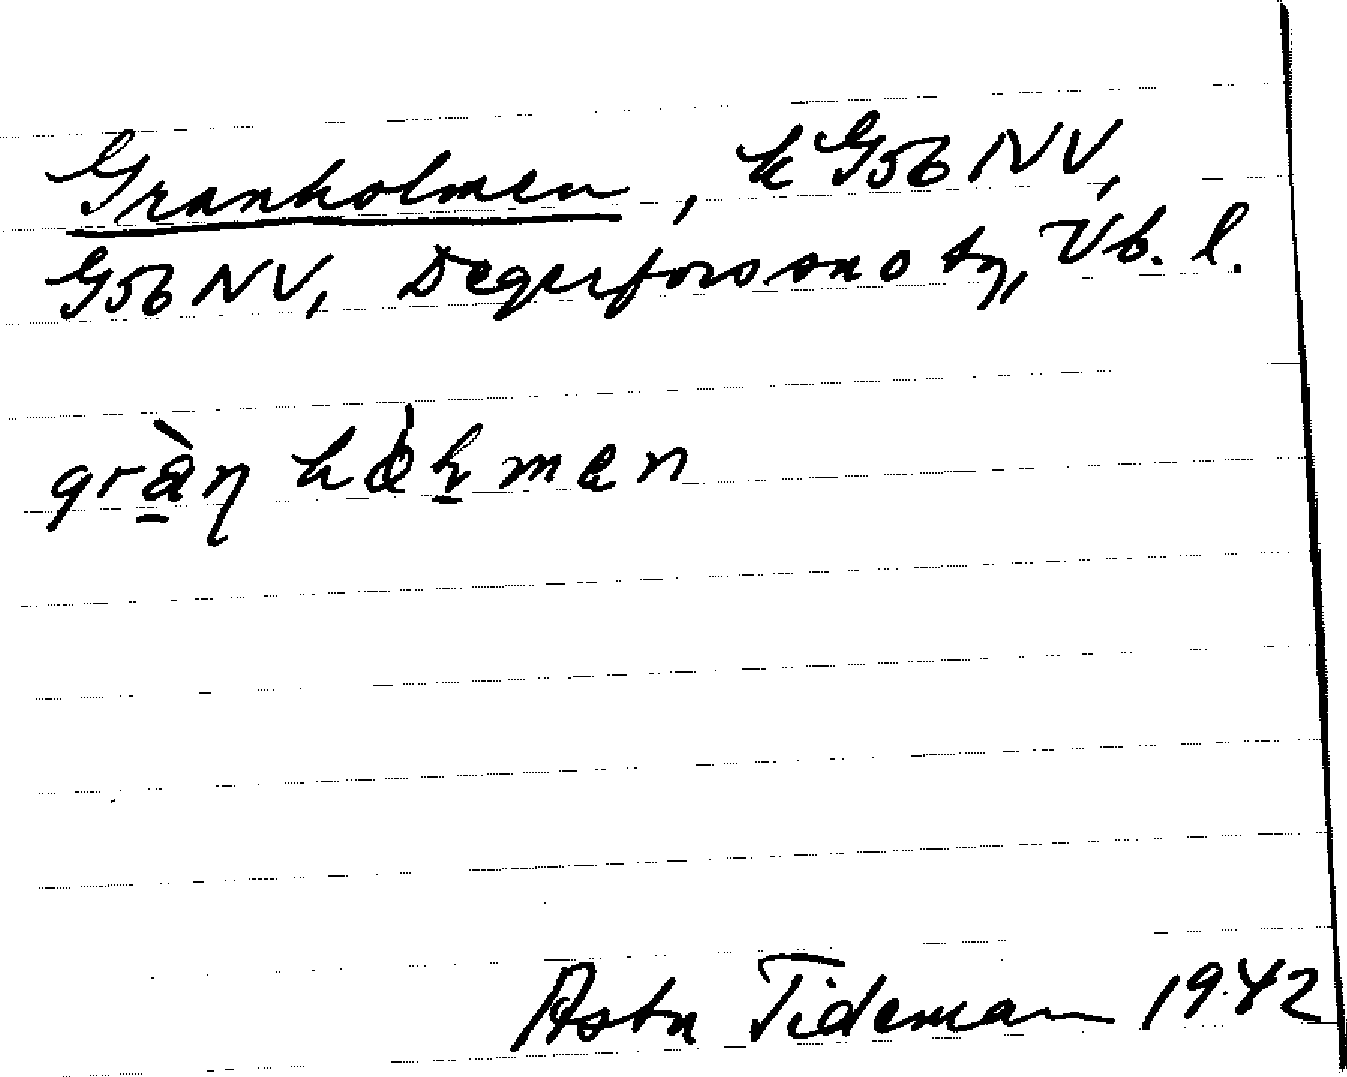 Granholmen, k G56 NV,
G56 NV, Degerfors sn o tg, Vb. l.
Asta Tideman 1942